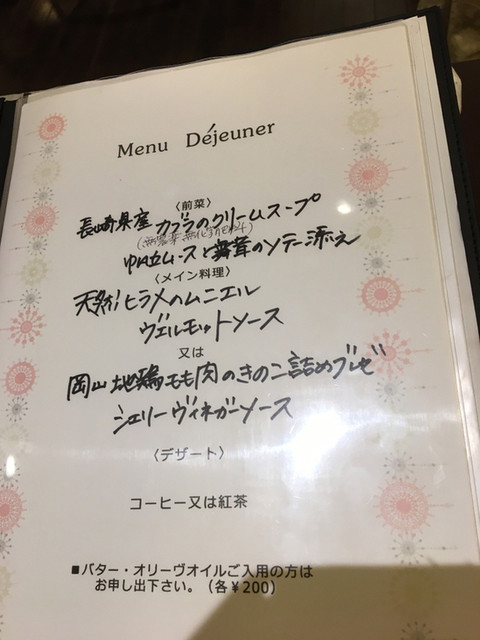 Menu Déjeuner
〈前菜〉
長崎県産 カブラのクリームスープ
帆立ムースと舞茸のソテー添え
〈メイン料理〉
天然ヒラメのムニエル
ヴェルモットソース
又は
岡山地鶏もも肉のきのこ詰めブレゼ
シェリーヴィネガーソース
〈デザート〉
コーヒー又は紅茶
■バター・オリーヴオイルご入用の方は
お申し出下さい。（各¥200）